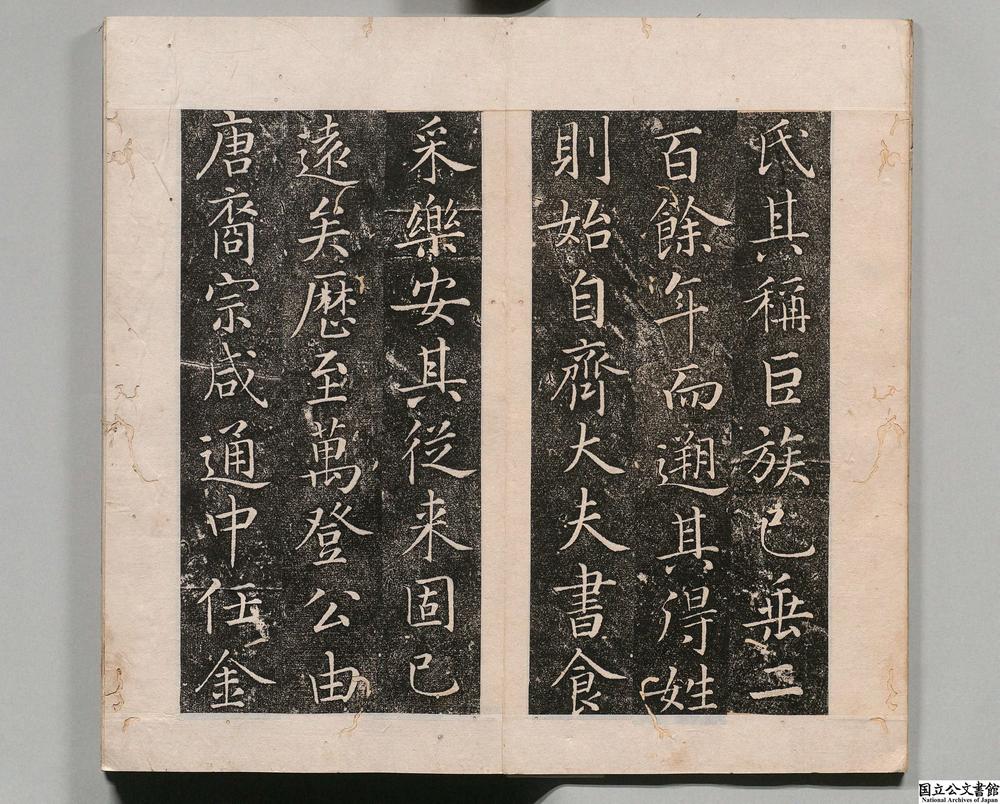 氏其稱巨族已垂二
百餘年而遡其得姓
則始自齊大夫書食
采樂安其從来固已
遠矣歷至萬登公由
唐裔宗咸通中任金
国立公文書館
National Archives of Japan